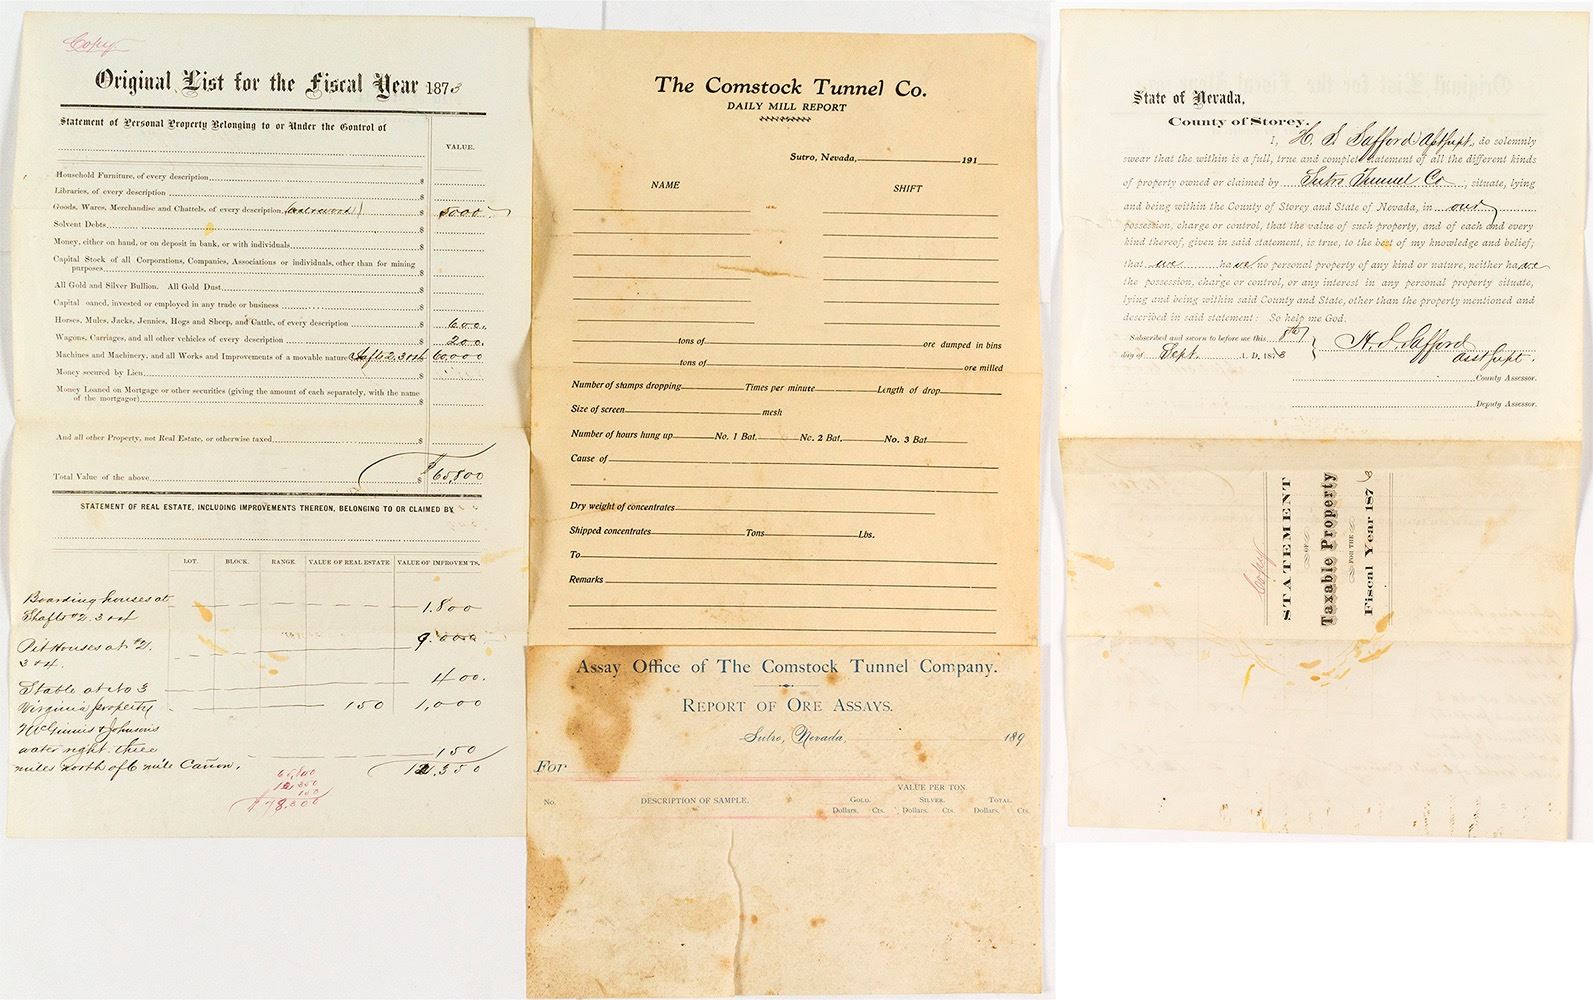 Copy
Original List for the Fiscal Year 1873
Statement of Personal Property Belonging to or Under the Control of
VALUE.
Household Furniture, of every description $
Libraries, of every description $
Goods, Wares, Merchandise and Chattels, of every description, $ 5000
Solvent Debts $
Money, either on hand, or on deposit in bank, or with individuals $
Capital Stock of all Corporations, Companies, Associations or individuals, other than for mining
purposes $
All Gold and Silver Bullion. All Gold Dust $
Capital oaned, invested or employed in any trade or business $
Horses, Mules, Jacks, Jennies, Hogs and Sheep, and Cattle, of every description $ 600.
Wagons, Carriages, and all other vehicles of every description $ 200.
Machines and Machinery, and all Works and Improvements of a movable nature Shafts 2, 3 & 4 $ 60,000
Money secured by Lien $
Money Loaned on Mortgage or other securities (giving the amount of each separately, with the name
of the mortgagor) $
And all other Property, not Real Estate, or otherwise taxed $
Total Value of the above $ $65,800
STATEMENT OF REAL ESTATE, INCLUDING IMPROVEMENTS THEREON, BELONGING TO OR CLAIMED BY
LOT. BLOCK. RANGE. VALUE OF REAL ESTATE VALUE OF IMPROVEM'TS.
Boarding houses at
Shafts #2. 3 & 4 1.800
Pit Houses at #2.
3 & 4. 9.000
Stable at No 3 400.
Virginia property 150 1,000
McGinnis & Johnson's
water right. three 150
miles north of 6 mile Cañon. 12,350
65,800
12,350
150
$78,300
The Comstock Tunnel Co.
DAILY MILL REPORT
Sutro, Nevada, 191
NAME SHIFT
tons of ore dumped in bins
tons of ore milled
Number of stamps dropping Times per minute Length of drop
Size of screen mesh
Number of hours hung up No. 1 Bat. No. 2 Bat. No. 3 Bat
Cause of
Dry weight of concentrates
Shipped concentrates Tons Lbs.
To
Remarks
Assay Office of The Comstock Tunnel Company.
REPORT OF ORE ASSAYS.
Sutro, Nevada, 189
For
VALUE PER TON.
No. DESCRIPTION OF SAMPLE. GOLD. SILVER. TOTAL.
Dollars. Cts. Dollars. Cts. Dollars. Cts.
State of Nevada,
County of Storey.
I, H. S. Safford Asst Supt, do solemnly
swear that the within is a full, true and complete statement of all the different kinds
of property owned or claimed by Sutro Tunnel Co, situate, lying
and being within the County of Storey and State of Nevada, in our
possession, charge or control, that the value of such property, and of each and every
kind thereof, given in said statement, is true, to the best of my knowledge and belief;
that we have no personal property of any kind or nature, neither have
the possession, charge or control, or any interest in any personal property situate,
lying and being within said County and State, other than the property mentioned and
described in said statement: So help me God.
Subscribed and sworn to before me this 8th
day of Sept. A. D. 1873 H. S. Safford
asst Supt.
County Assessor.
Deputy Assessor.
Copy
STATEMENT
OF
Taxable Property
FOR THE
Fiscal Year 1873